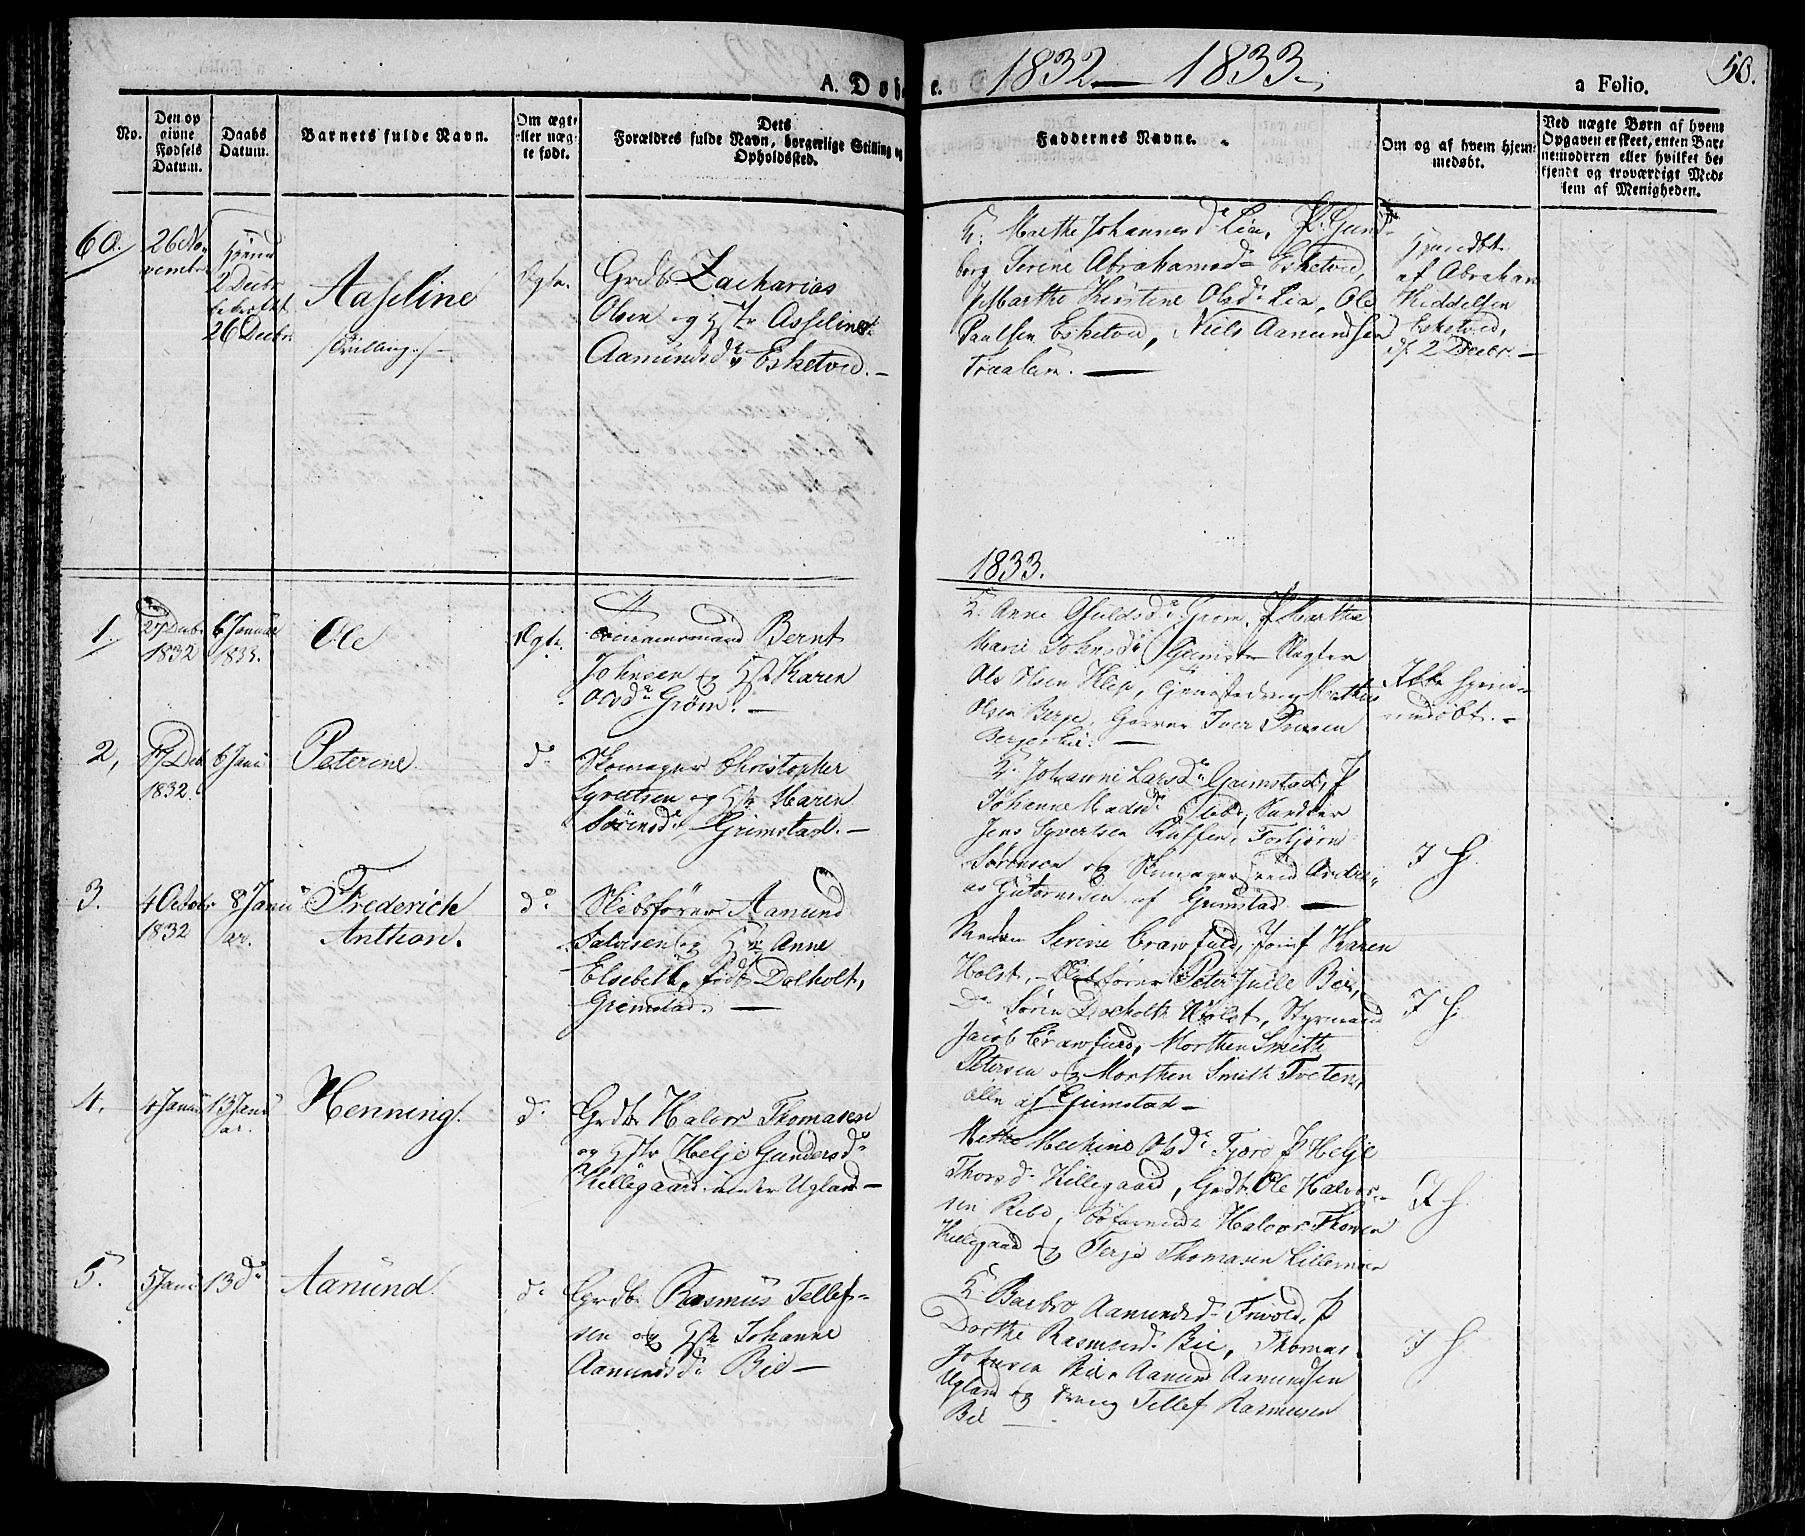 1832 — 1833.
50.
A. Døbte.
a Folio.
No.
Den op
givne
Fødsels
Datum.
Daabs
Datum.
Barnets fulde Navn.
Om ægte
eller uæg-
te født.
Dets
Forældres fulde Navn, borgerlige Stilling og
Opholdssted.
Faddernes Navne.
Om og af hvem hjem-
medøbt.
Ved uægte Børn af hvem
Opgaven er skeet, enten Bar-
nemoderen eller hvilket be-
kjendt og troværdigt Med-
lem af Menigheden.
60.
26 No-
vember
hjemd
2 Decbr
26 Decbr
Aaseline
/:Tvilling:/
Ægte.
Grdb. Zacharias
Olsen og Hstr Asseline
Aamundsdr Esketved. —
K. Marthe Johannesdr Lia, P. Gund-
borg Serine Abrahamsdr Esketved,
Marthe Kirstine Olsdr Lia, Ole
Paulsen Esketved, Niels Aamundsen
Fraalan. —
Hjemdbt
af Abraham
Kiddelsen
Esketved,
d. 2 Decbr. —
1833.
1.
27 Decbr.
1832
6 Januar
1833.
Ole
Ægte.
Bernt
Johnsen og Hstr Karen
Olsdr Grøm. —
K. Anne Gjuldsdr Grøm, P. Marthe
Marie Johnsdr Grimstad, Slagter
Ole Olsen Klep, Mathias
Olsen Berge, Iver
Ikke hjem-
medøbt. —
2,
17 Dec.
1832.
6 Janr
Peterine
do
Skomager Christopher
Syvertsen og Hstr Maren
Sørensdr Grimstad. —
K. Johanne Larsdr Grimstad, P
Johanne Madsdr ibd,
Jens Syvertsen Torbjørn
Sørensen og Skomagersvend Andre-
as Gutormsen af Grimstad. —
I H.
3.
4 October
1832
8 Janu
ar.
Frederich
Anthon.
do
Skibsfører Aamund
Salvesen og Hstr Anne
Elsebeth, født Dolholt,
Grimstad. —
Madam Serine Crawfurd, Jomf Karen
Holst, Skibsfører Peter Juell Bie,
do Søren Dolholt Holst, Styrmand
Jacob Crawfurd, Morthen Smith
Petersen og Morthen Smith Tveten,
alle af Grimstad —
I H.
4.
4 Januar
13 Janu
ar.
Henning.
do
Grdb. Halvor Thomasen
og Hstr Helje Gundersdr
Killegaard under Ugland —
Mette Mechine Olsdr Fjære P Helje
Thorsdr Killegaard, Grdb. Ole Halvor-
sen Ribe, Søfarende Halvor Thorsen
Killegaard og Terje Thomasen Lillemoen
I H.
5.
5 Janr
13 do
Aamund
do
Grdb. Rasmus Tellef-
sen og Hstr Johanne
Aamundsdr Bie —
K. Barbro Aamundsdr Frivold, P
Dorthe Rasmusdr Bie, Thomas
Johnsen Bie, Aamund Aamundsen
Ugland og Dreng Tellef Rasmusen
Bie —
I H.